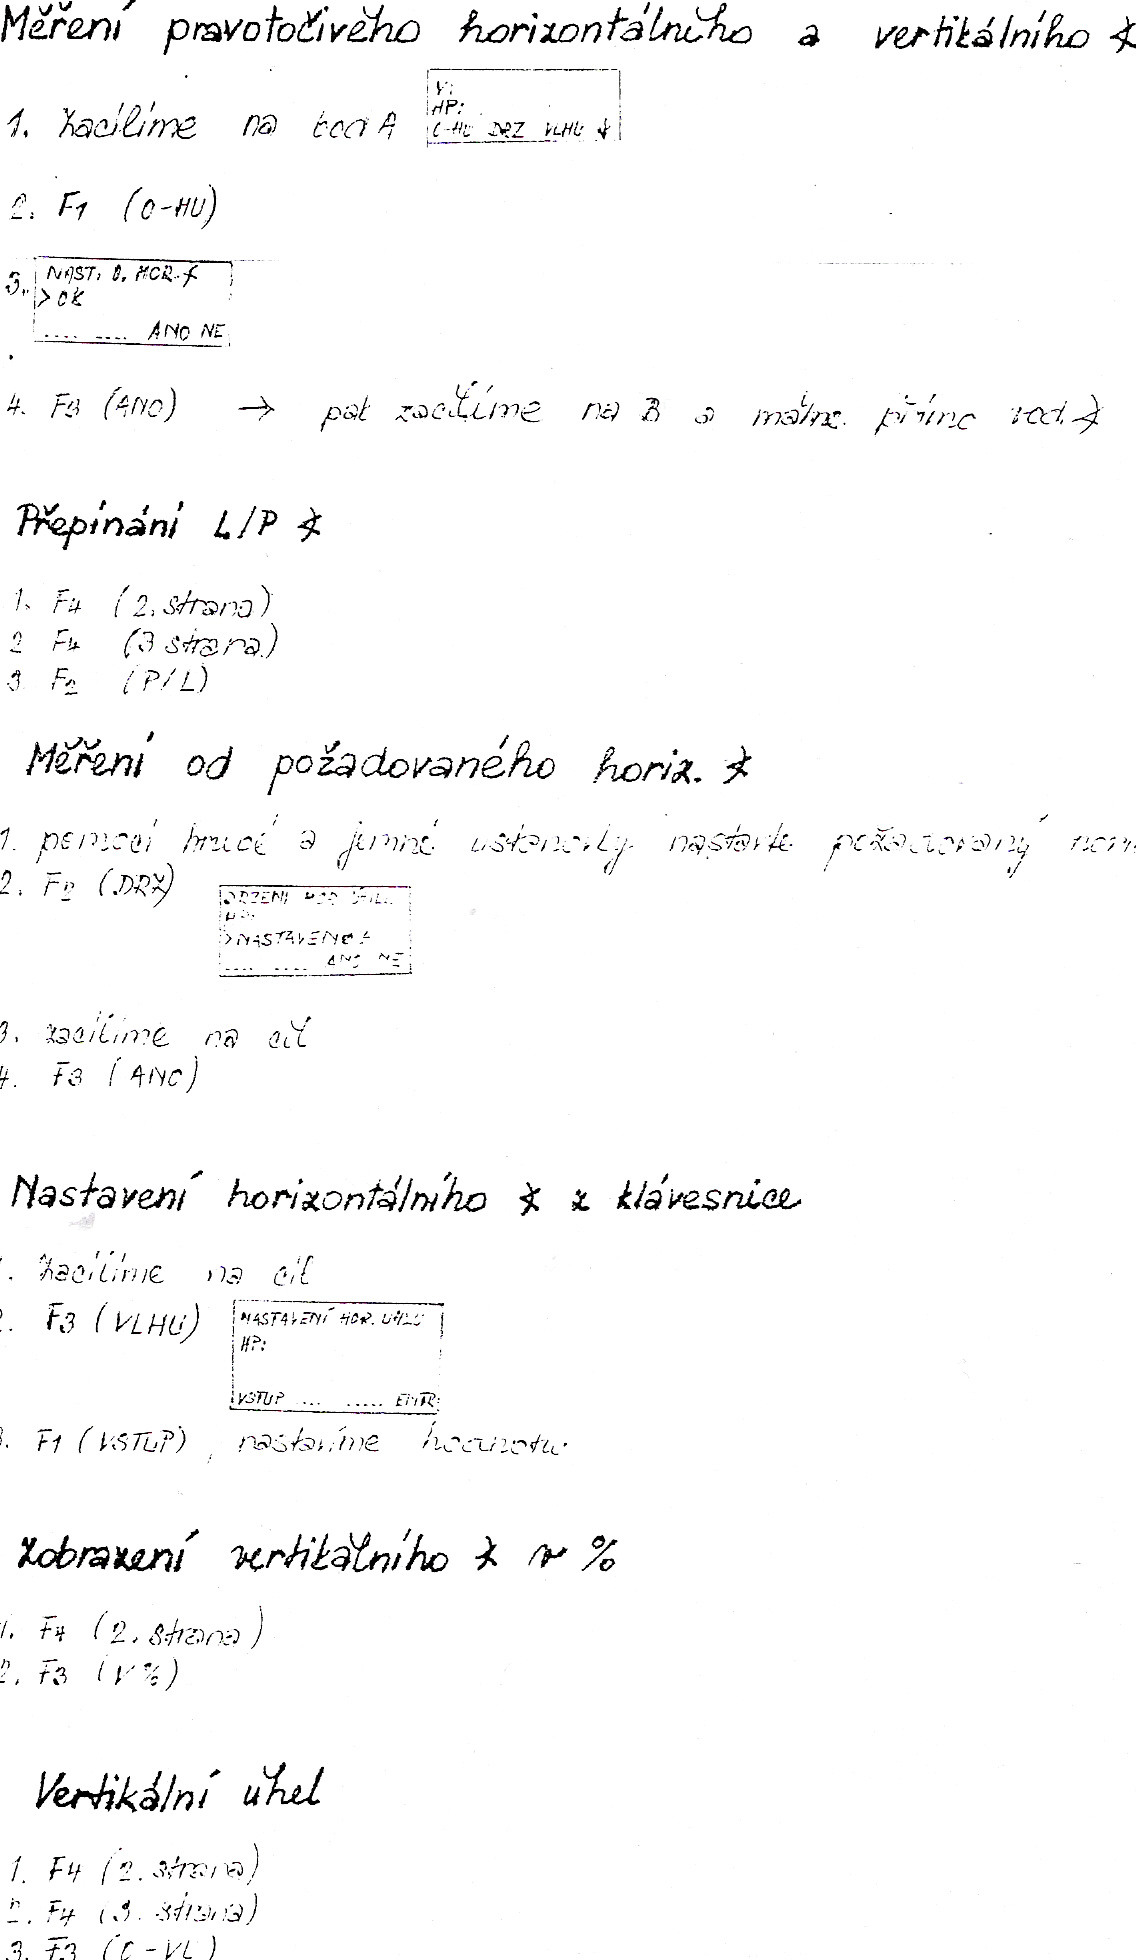 Měření pravotočivého horizontálního a vertikálního ∢
1. Zacílíme na bod A
V:
HP:
0-HU DRZ VLHU ↓
2. F1 (0-HU)
3. NAST. 0. HOR. ∢
> OK
.... .... ANO NE
4. F3 (ANO) → pak zacílíme na B a máme přímo vod. ∢
Přepínání L/P ∢
1. F4 (2. strana)
2 F4 (3 strana)
3. F2 (P/L)
Měření od požadovaného horiz. ∢
1. pomocí hrubé a jemné ustanovky nastavte požadovaný
2. F2 (DRZ)
DRZENI HOR
HP:
> NASTAVENO
.... .... ANO NE
3. zacílíme na cíl
4. F3 (ANO)
Nastavení horizontálního ∢ z klávesnice
1. Zacílíme na cíl
2. F3 (VLHU)
NASTAVENÍ HOR. UHLU
HP:
VSTUP ... ..... ENTR
3. F1 (VSTUP), nastavíme hodnotu
Zobrazení vertikálního ∢ v %
1. F4 (2. strana)
2. F3 (V%)
Vertikální úhel
1. F4 (2. strana)
2. F4 (3. strana)
3. F3